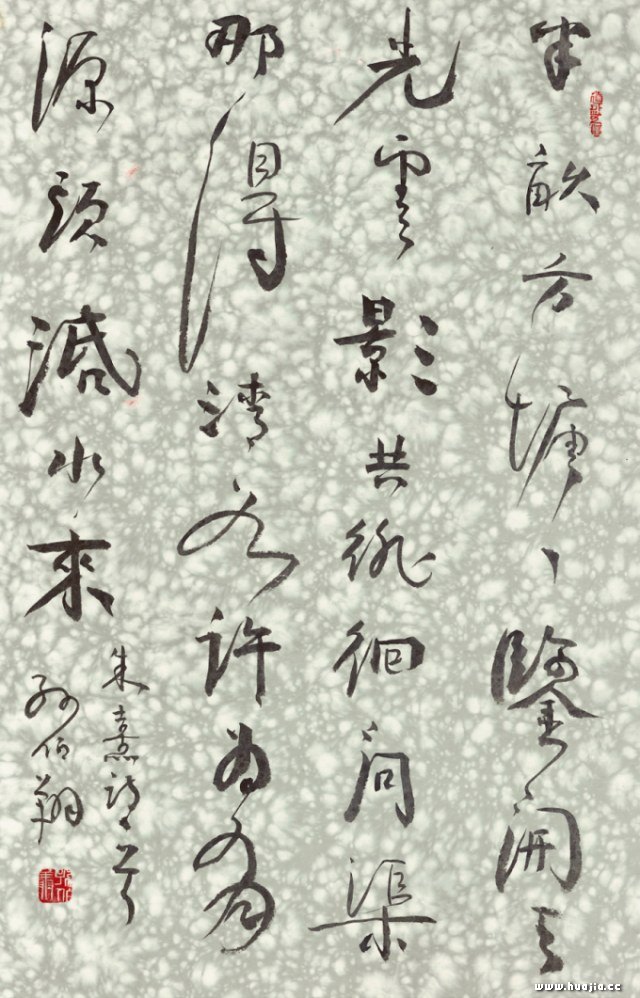 半畝方塘一鑒開天
光雲影共徘徊問渠
那得清如許為有
源頭活水來
朱熹詩一首
孫伯翔
www.huajia.cc